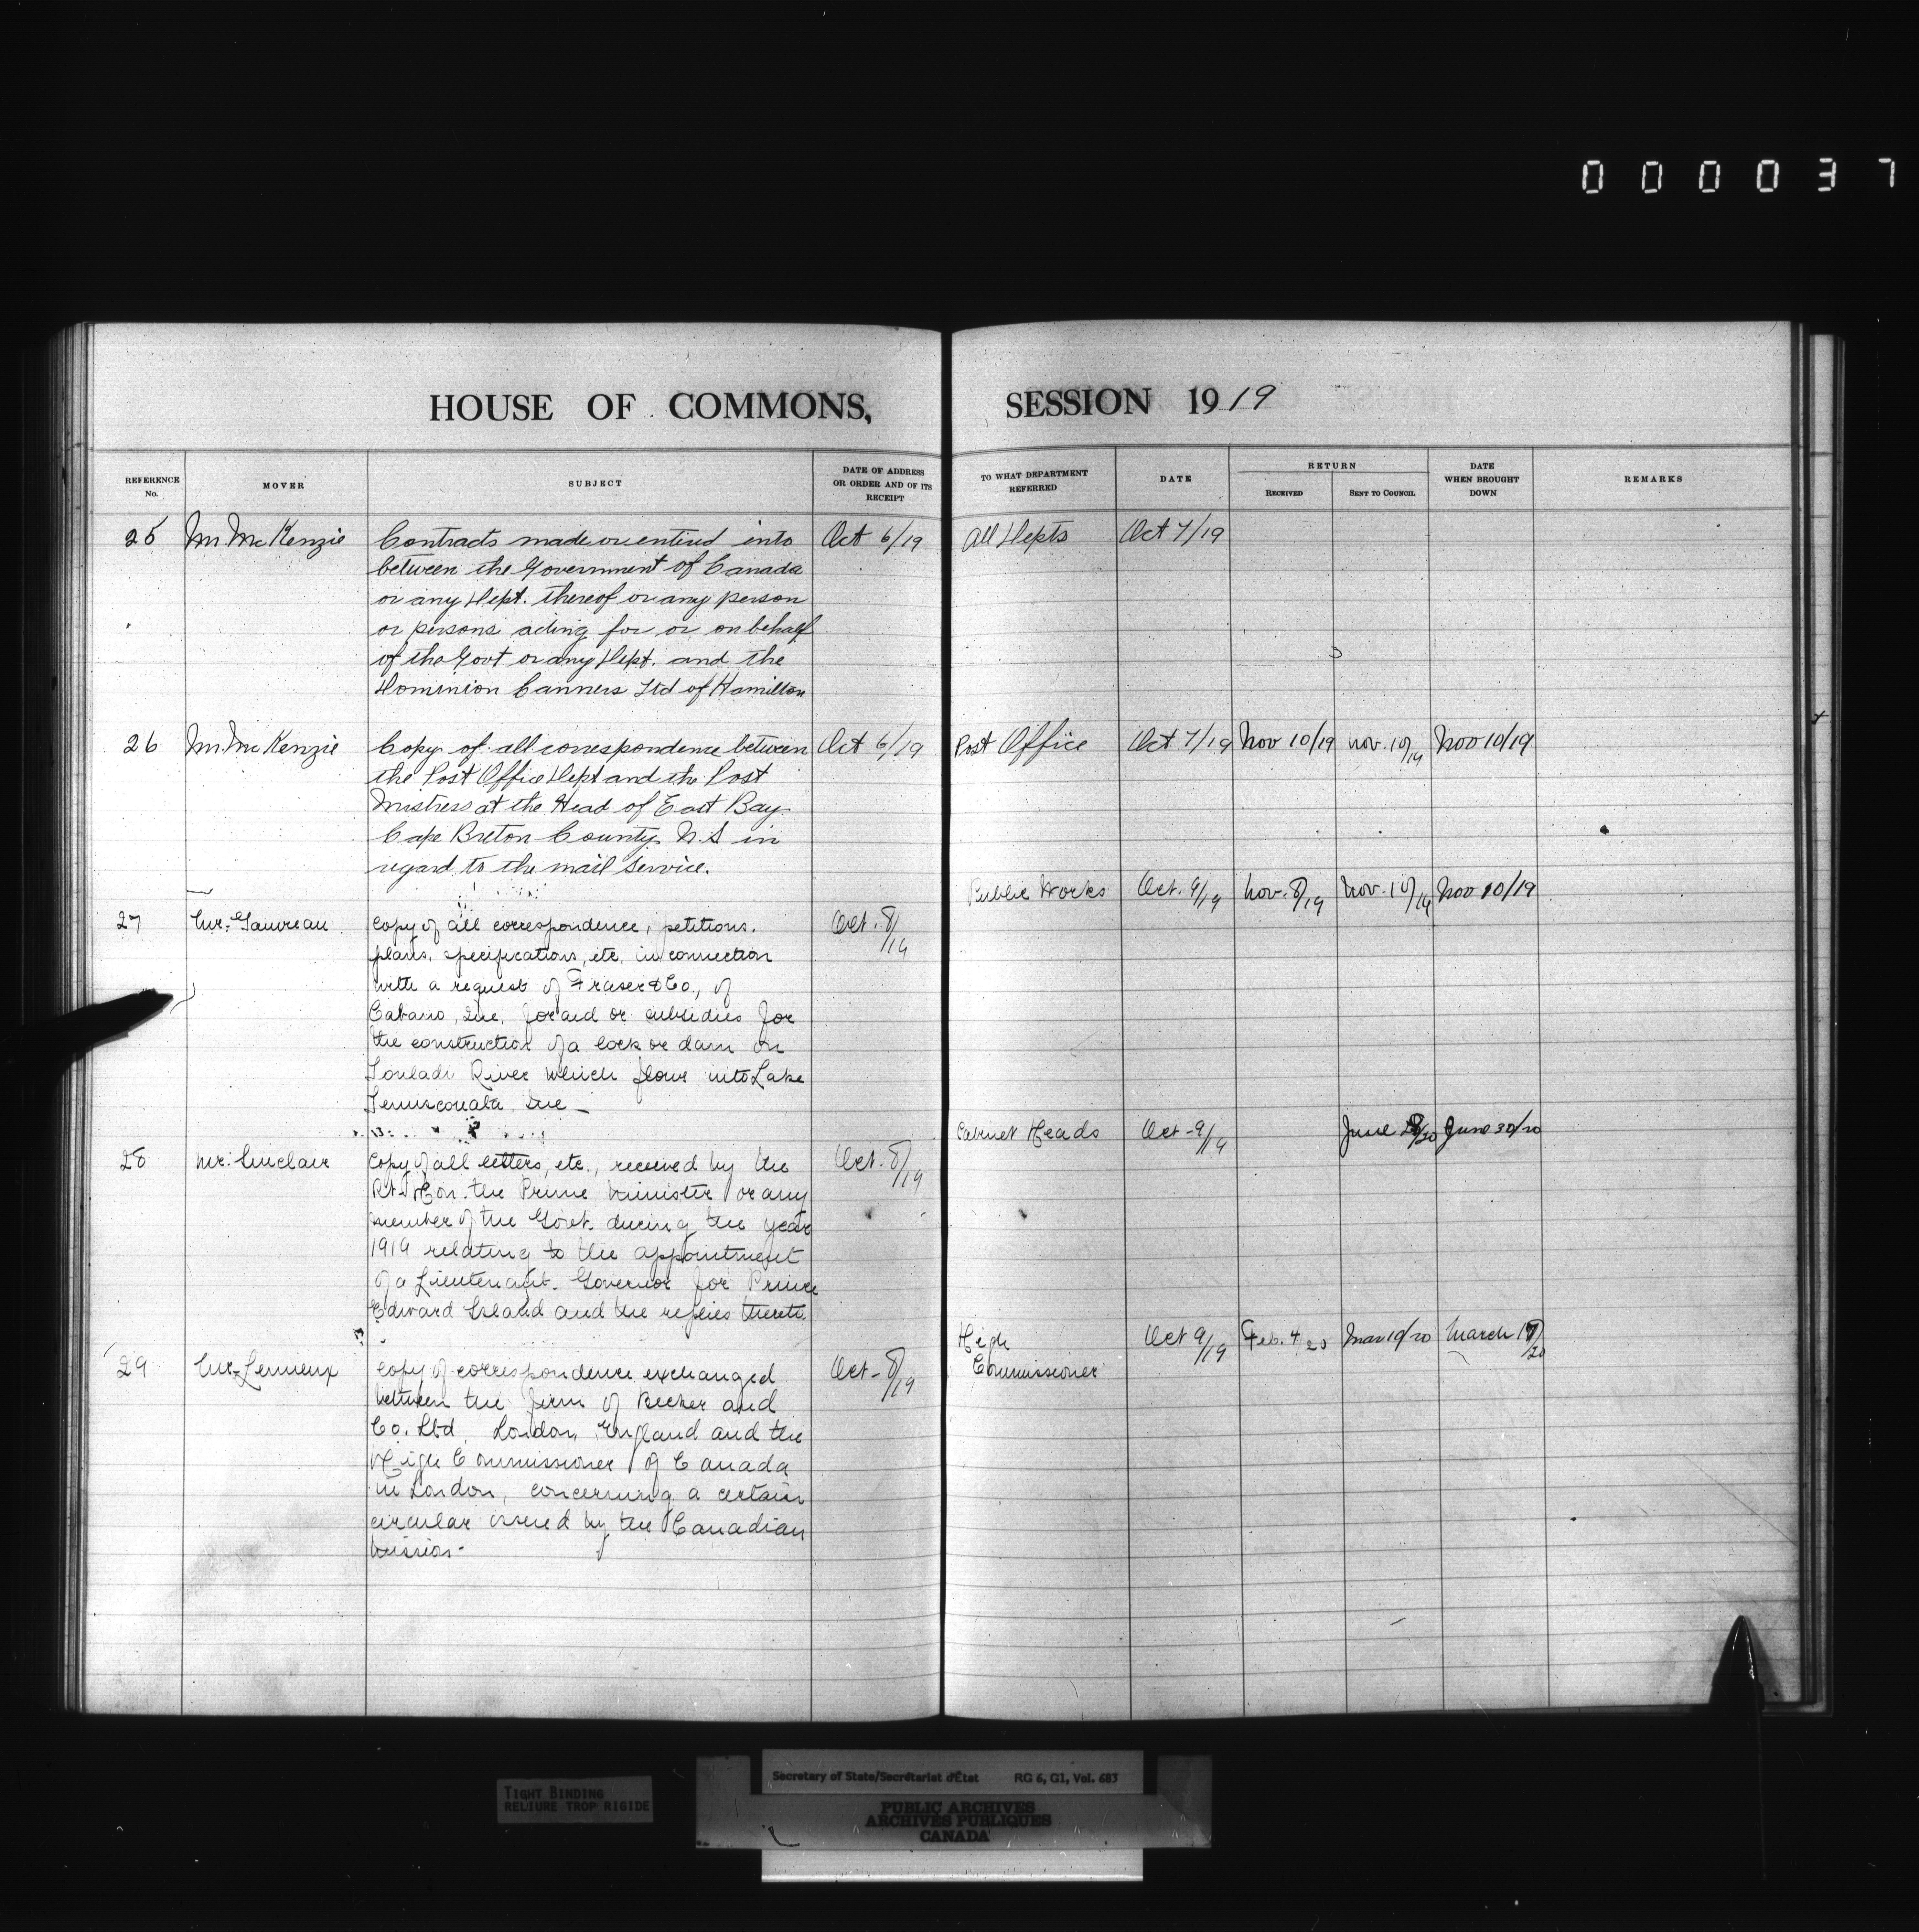 0 0 0 0 3 7
HOUSE OF COMMONS, SESSION 1919
REFERENCE No.
MOVER
SUBJECT
DATE OF ADDRESS OR ORDER AND OF ITS RECEIPT
TO WHAT DEPARTMENT REFERRED
DATE
RETURN
RECEIVED
SENT TO COUNCIL
DATE WHEN BROUGHT DOWN
REMARKS
25 Mr. McKenzie Contracts made or entered into Oct 6/19 All Depts Oct 7/19
between the Government of Canada
or any Dept. thereof or any person
or persons acting for or on behalf
of the Govt or any Dept. and the
Dominion Canners Ltd of Hamilton
26 Mr. McKenzie Copy of all correspondence between Oct 6/19 Post Office Oct 7/19 Nov 10/19 Nov. 10/19 Nov 10/19
the Post Office Dept and the Post
Mistress at the Head of East Bay
Cape Breton County N.S in
regard to the mail service.
Public Works Oct. 9/19 Nov. 8/19 Nov. 10/19 Nov 10/19
27 Mr. Gauvreau Copy of all correspondence, petitions, Oct. 8/19
plans, specifications, etc, in connection
with a request of Fraser & Co., of
Cabano, Que, for aid or subsidies for
the construction of a lock or dam on
Touladi River which flows into Lake
Temiscouata Que
Cabinet Heads Oct-9/19 June /20 June 30/20
28 Mr. Sinclair Copy of all letters, etc., received by the Oct. 8/19
Rt. Hon. the Prime Minister or any
member of the Govt. during the year
1919 relating to the appointment
of a Lieutenant-Governor for Prince
Edward Island and the replies thereto.
High Oct 9/19 Feb. 4 20 Mar 19/20 March /20
Commissioner
29 Mr. Lemieux Copy of correspondence exchanged Oct-8/19
between the firm of Becker and
Co. Ltd, London, England and the
High Commissioner of Canada
in London, concerning a certain
circular issued by the Canadian
Mission-
TIGHT BINDING
RELIURE TROP RIGIDE
Secretary of State/Secrétariat d'État RG 6, G1, Vol. 683
PUBLIC ARCHIVES
ARCHIVES PUBLIQUES
CANADA